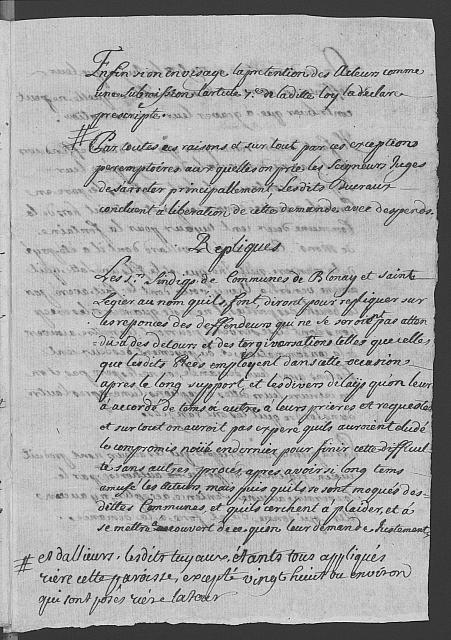 Enfin si on envisage la pretention des Acteurs comme
une Submission l'article 7.e de la dite loy la declare
prescripte.
# Par toutes ces raisons et sur tout par ces exceptions
peremptoires aux quelles on prie les Seigneurs Juges
de s'arreter principallement lesdits
concluent à liberation de cette demande avec despends.
Repliques
Les S.rs Sindigs de Communes de Blonay et Saint
Legier au nom qu'ils font, diront pour repliquer sur
les reponces des deffendeurs qui ne se seroient pas atten
du à des detours et des tergiversations telles que celles
que lesdits employent dans cette occasion
apres le long support, et les divers delais qu'on leur
à accordé de tems à autre a leurs prieres et requestes
et sur tout on auroit pas crû qu'ils auroient eludé
le compromis noüé en dernier pour finir cette difficul
té sans autres procés, apres avoir si long tems
amusé les Acteurs, mais puis qu'ils se sont moqués des
dittes Communes, et qu'ils cerchent à plaider, et à
se mettre à couvert de ce qu'on leur demande Justement,
# et d'allieurs, lesdits tuyaux, étants tous appliqués
riére cette parroisse, excepté vingt huict ou environ
qui sont posés riére la tour